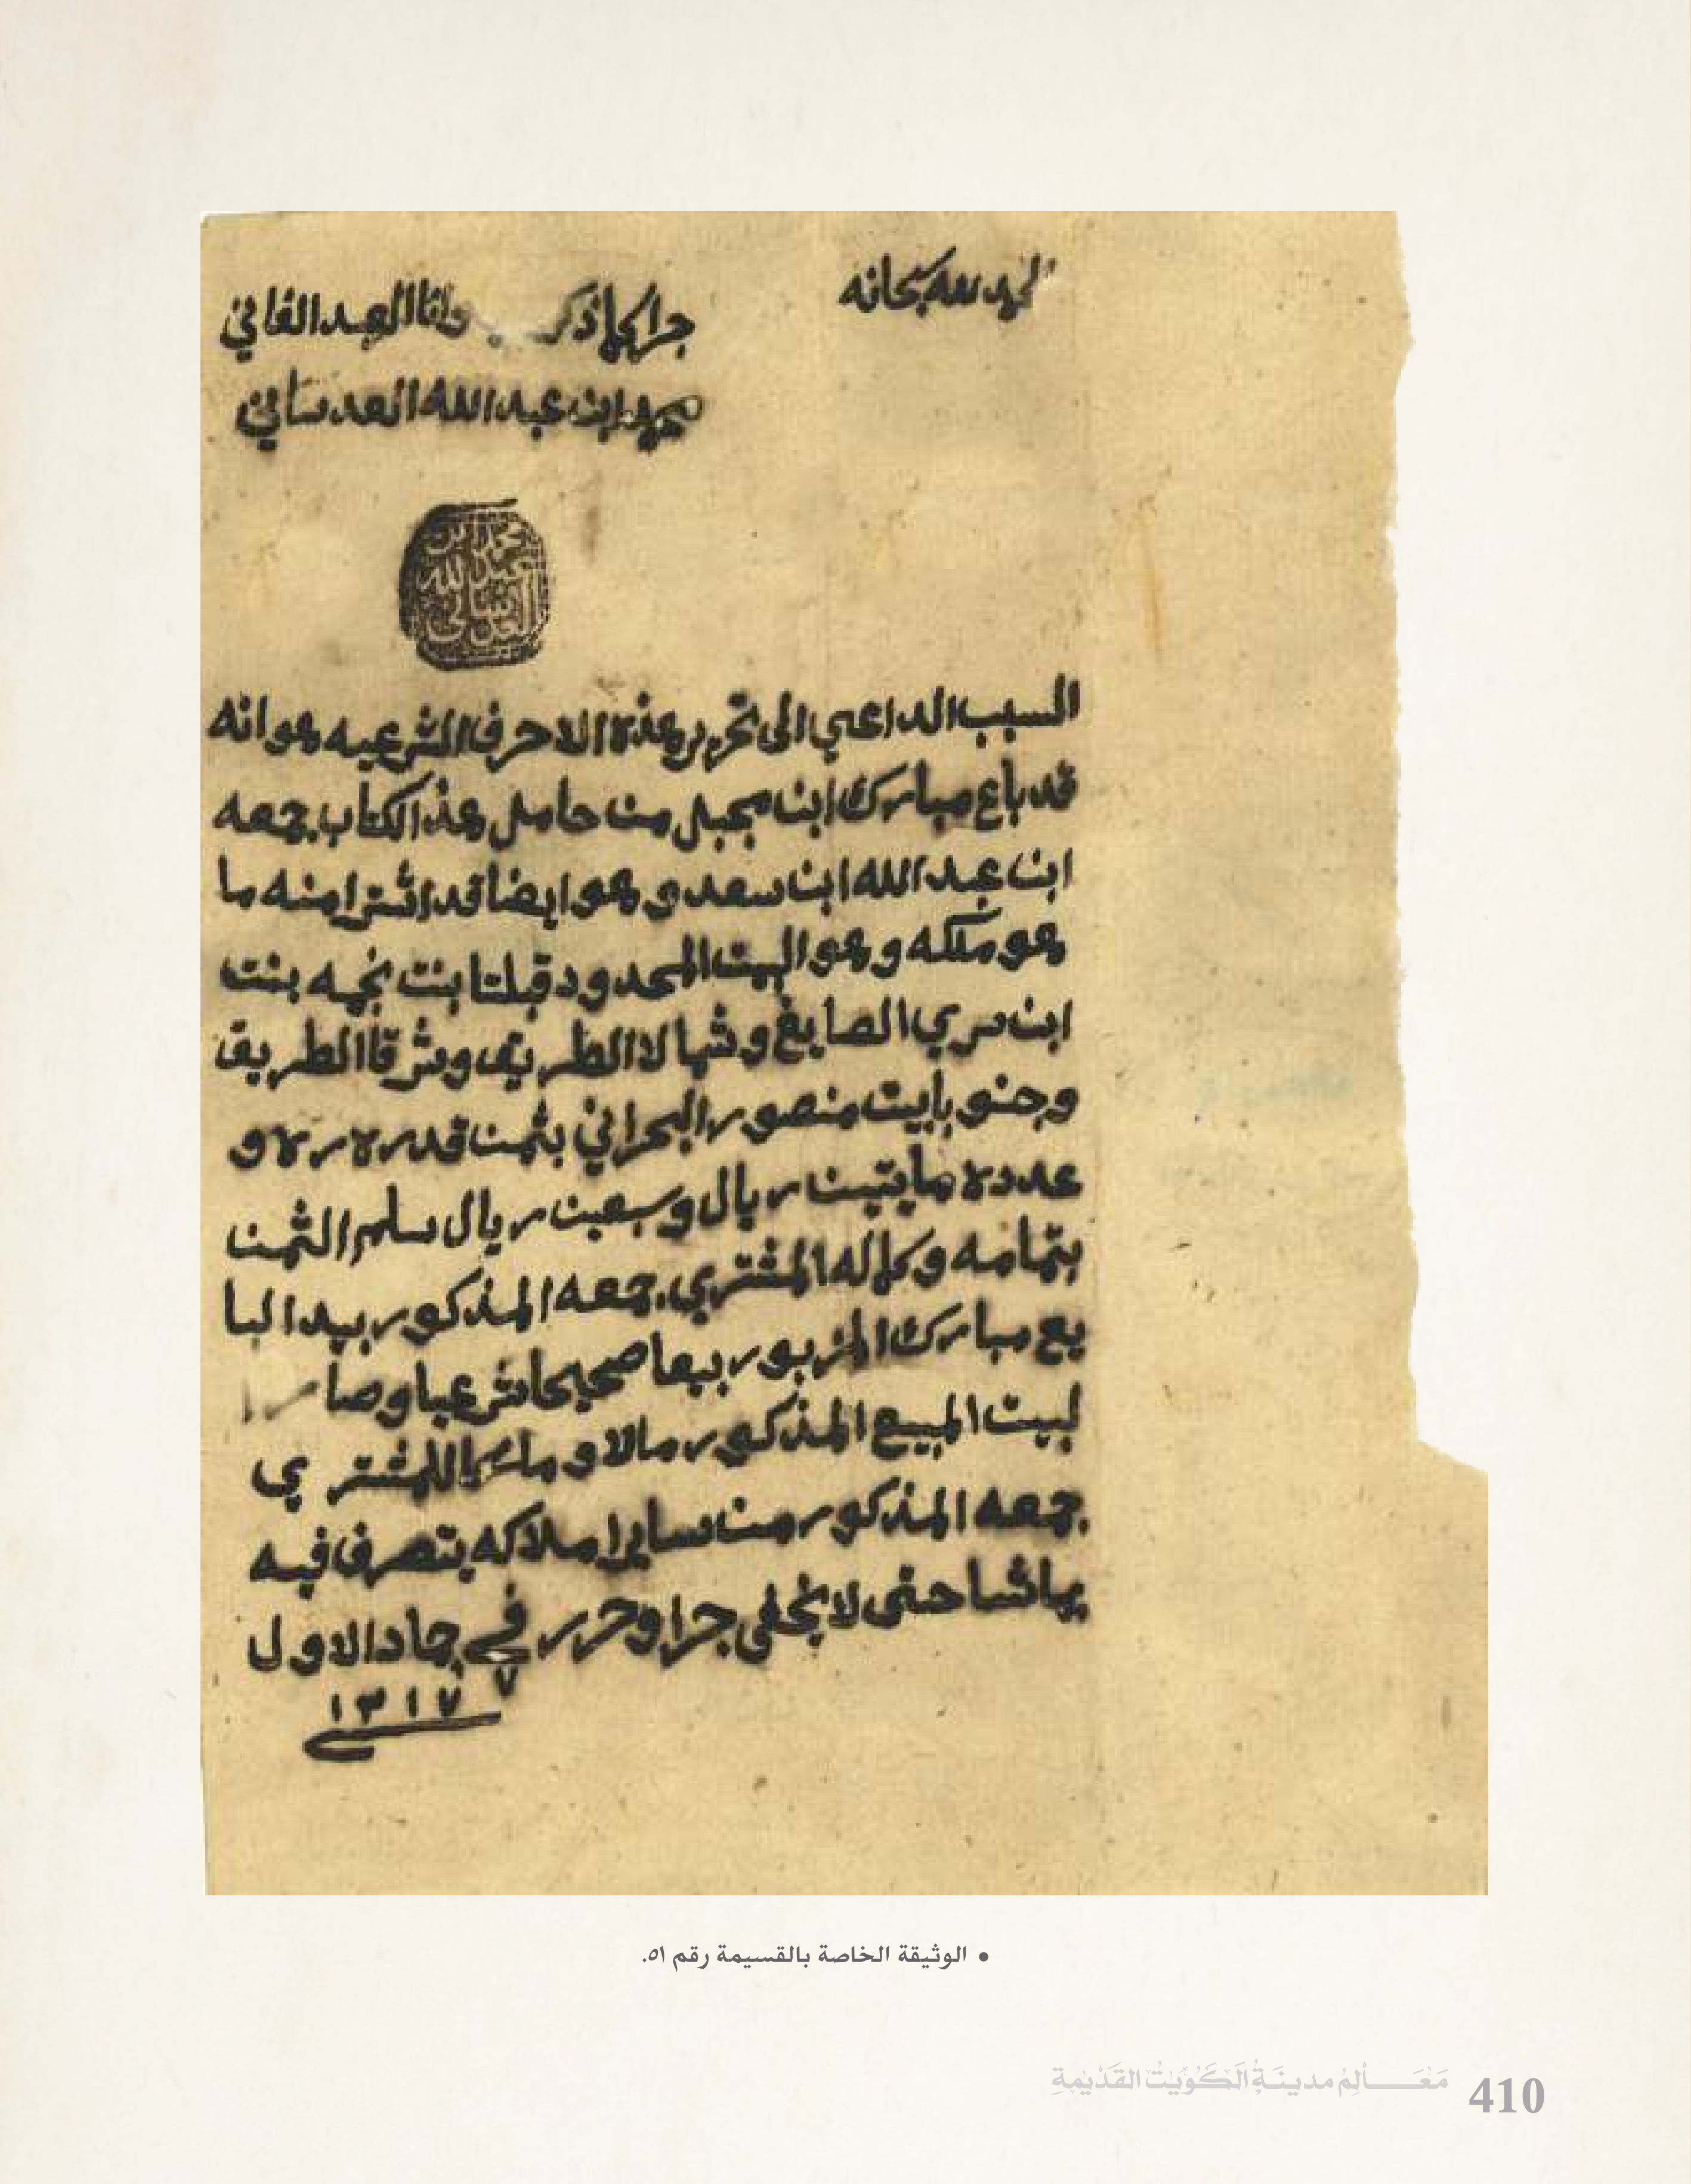 الحمد لله سبحانه
جرا كما ذكر وانا العبد الفاني
محمد ابن عبد الله العدساني
محمد ابن
عبد الله
العدساني
السبب الداعي الى تحرير هذه الاحرف الشرعيه هو انه
قد باع مبارك ابن مجبل من حامل هذ الكتاب جمعه
ابن عبد الله ابن سعد و هو ايضا قد اشترا منه ما
هو ملكه و هو البيت المحدود قبلتا بنت نجيه بنت
ابن سري الصايغ و شمالا الطريق و شرقا الطريق
و جنوبا بيت منصور البحراني بثمن قدره و
عدده مايتين ريال و سبعين ريال سلم الثمن
بتمامه و كماله المشتري جمعه المذكور بيد البا
يع مبارك المزبور بيعا صحيحا شرعيا و صار ا
لبيت المبيع المذكور مالا و ملكا للمشتري
جمعه المذكور من ساير املاكه يتصرف فيه
بماشا حتى لا يخفى جرا و حرر في جماد الاول
٧
١٣١٧
• الوثيقة الخاصة بالقسيمة رقم ٥١.
مَعَالِمُ مدينَةِ الكُوَيْتِ القَدْيمَةِ 410